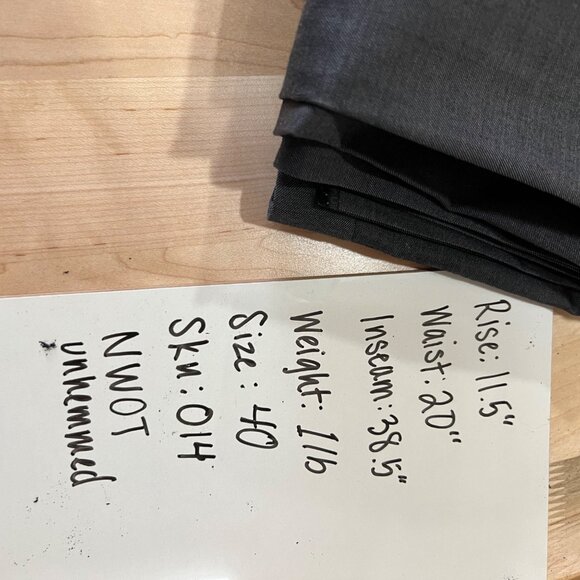 Rise: 11.5"
Waist: 20"
Inseam: 38.5"
Weight: 1lb
Size: 40
Sku: 014
NWOT
unhemmed